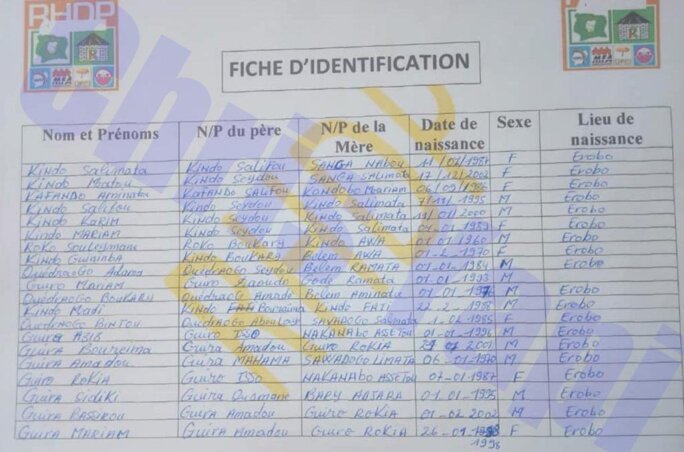 RHDP
FICHE D'IDENTIFICATION
Nom et Prénoms N/P du père N/P de la Mère Date de naissance Sexe Lieu de naissance
Kindo Salimata Kindo Salifou SANGA Nabou F Erobo
Kindo Kindo Seydou SANGA Salimata 17/12/2002 F Erobo
KAFANDO Aminata KAFANDO SALIFOU Kondobo Mariam 06/09/1986 F Erobo
Kindo Salifou Kindo Seydou Kindo Salimata 7/11/1995 M Erobo
Kindo KARIM Kindo Seydou Kindo Salimata 11/01/2000 M Erobo
Kindo MARIAM Kindo Seydou Kindo Salimata F Erobo
Roko Souleymane Roko Boukary Kindo AWA 01 01 1960 M Erobo
Kindo Kindo BOUKARY Belem AWA F Erobo
OuédraoGo Adama OuédraoGo Seydou Belem RAMATA M Erobo
Guiro Mariam Guiro Ramata 01 01 1993 M
OuedraoGo BOUKARY OuédraoGo Amade Belem Aminata M Erobo
Kindo Madi Kindo Kindo FATI M Erobo
OuedraoGo BINTOU OuedraoGo SAWADOGO Salimata F Erobo
Guira Guiro ISSO NAKANABO ASSETOU 01-01-1996 M Erobo
Guira Boureima Guira Amadou Guiro ROKIA 2001 M Erobo
Guira Amadou Guira MAHAMA SAWADOGO LIMATA 06-01-1970 M Erobo
Guiro ROKIA Guiro ISSO NAKANABO ASSETOU 07-01-1987 F Erobo
Guira SIDIKI Guira Ousmane BARY ADJARA 01-01-1995 M Erobo
Guira RASSROU Guira Amadou Guiro ROKIA 01-02-2002 M Erobo
Guira MARIAM Guira Amadou Guiro ROKIA F Erobo
1998